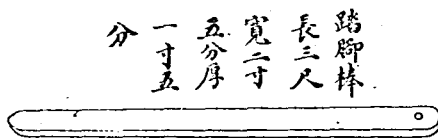 踏腳棒
長三尺
寬二寸
五分厚
一寸五
分